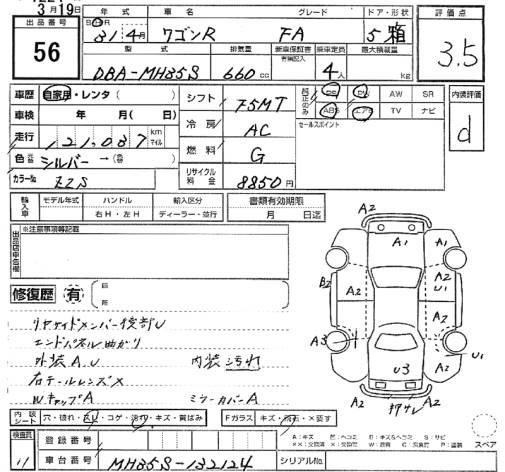 3月19日
年式 車名 グレード ドア・形状 評価点
出品番号
S H 31 4月 ワゴンR FA 5 箱
56
3.5
型式 排気量 新車保証書 乗車定員 最大積載量
有無記入
DBA-MH35S 660cc 4人 kg
車歴 自家用・レンタ( )
シフト F5MT
装備のみ PS PW AW SR
ABS エアB TV ナビ
内装評価
d
車検 年 月( 日)
冷房 AC
セールスポイント
走行 121,087 km マイル
燃料 G
色 シルバー →(
カラーNo. ZZS
リサイクル料金 8850円
輸入車 モデル年式 ハンドル 輸入区分 書類有効期限
右H・左H ディーラー・並行 月 日迄
出品店申告欄 ※注意事項等記載
修復歴 有
リヤサイドメンバー後部U
エンドパネル曲がり
外装A.U 内装汚れ
右テールレンズ×
WキャップA ミラーカバーA
A2
A1 A1
A2
U1
B2 A2 A2
A3 A2 U1
U3
A2 A2
押サレ
内装シート 穴・破れ・スレ・コゲ・汚れ・キズ・黄ばみ
Fガラス キズ・飛石・×要す
A:キズ
スペア
検査員
登録番号
車台番号 MH35S-132124
シリアルNo.